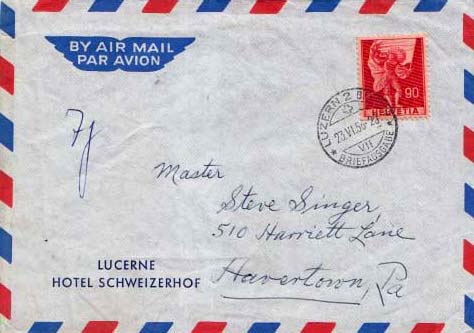 BY AIR MAIL
PAR AVION
90
HELVETIA
LUZERN 2
23.VI.56
VII
* BRIEFAUSGABE *
Master
Steve Singer,
510 Harriett Lane
Havertown, Pa
LUCERNE
HOTEL SCHWEIZERHOF